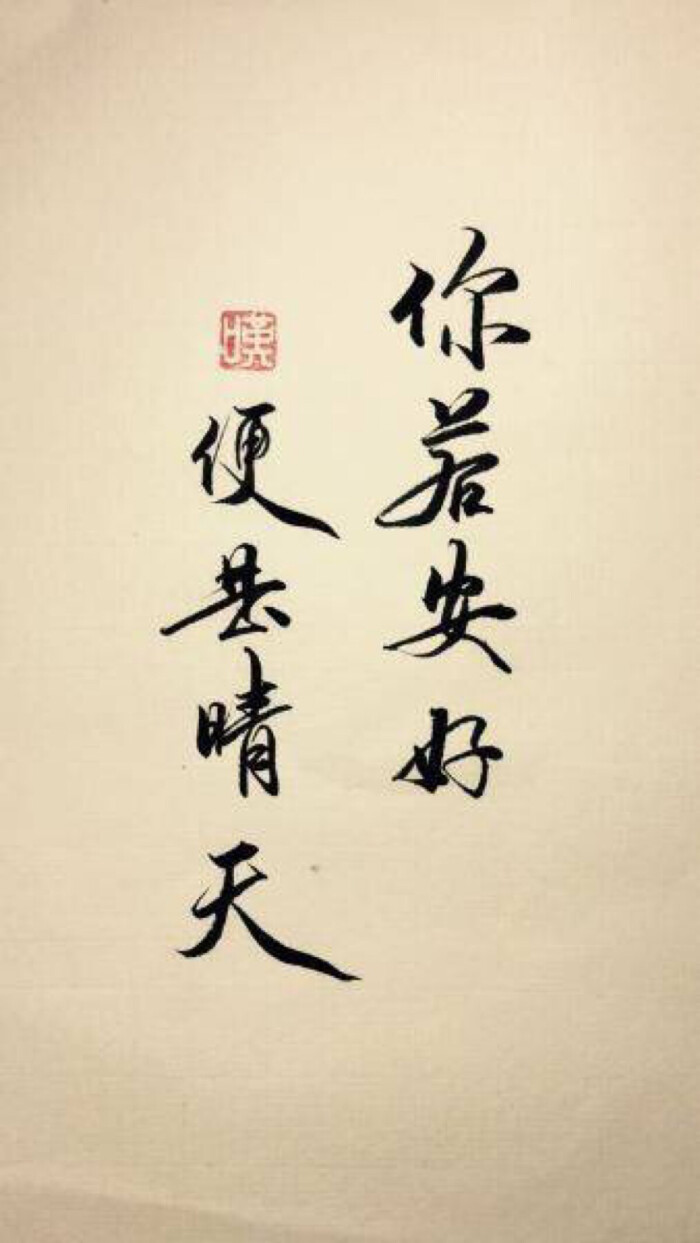 你若安好
便甚晴天